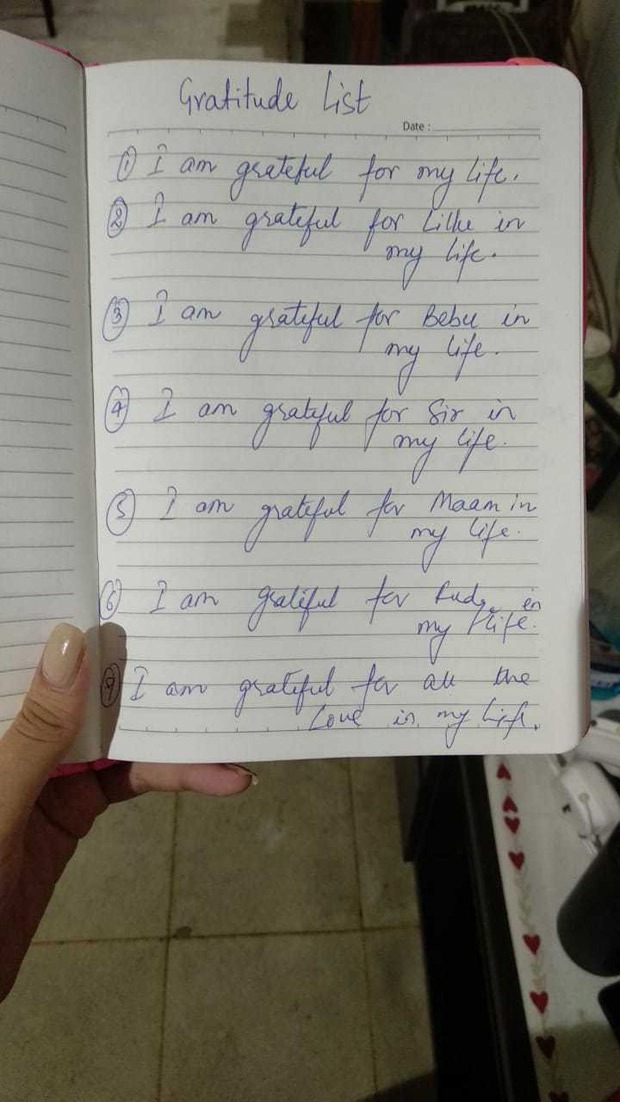 Gratitude List
Date :
1 I am grateful for my life.
2 I am grateful for Lillu in
my life.
3 I am grateful for Bebu in
my life.
4 I am grateful for Sir in
my life.
5 I am grateful for Maam in
my life.
6 I am grateful for in
my life.
7 I am grateful for all the
Love in my Life.